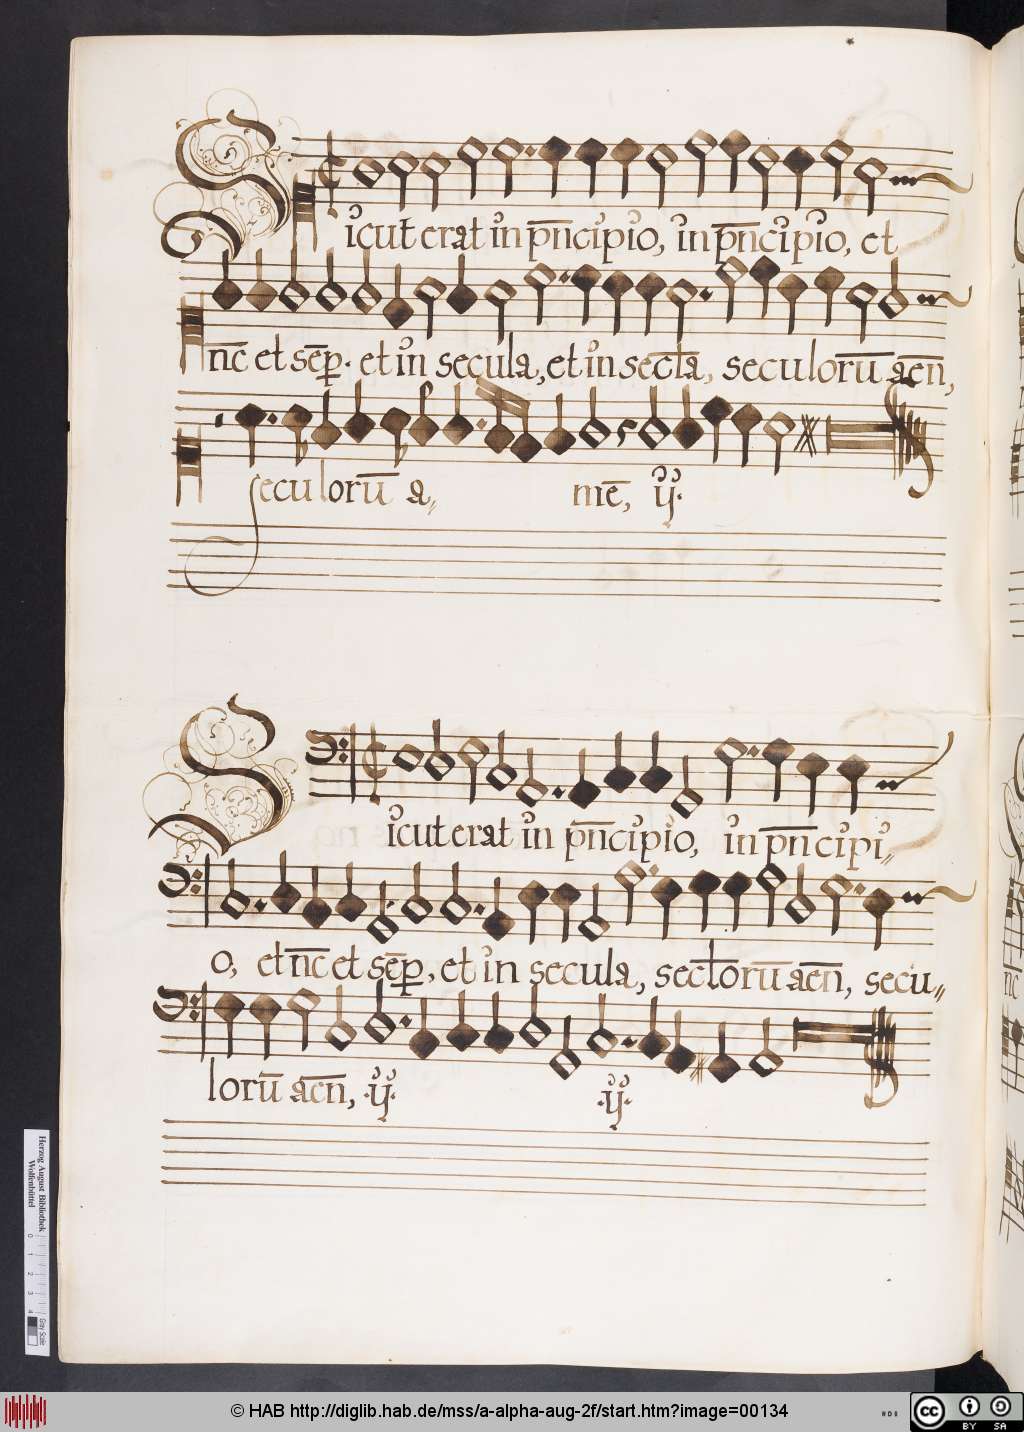 Sicut erat in pñcipio, in pñcipio, et
nc̄ et sēp. et in secula, et in secla, seculorū aēn,
seculorū a〃 mē, ÿ.
Sicut erat in pñcipio, in pñcipi〃
o, et nc̄ et sēp, et in secula, seclorū aēn, secu〃
lorū aēn, ·ÿ· ·ÿ·
Herzog August Bibliothek
Wolfenbüttel
0 1 2 3 4
Gray Scale
© HAB http://diglib.hab.de/mss/a-alpha-aug-2f/start.htm?image=00134
cc BY SA